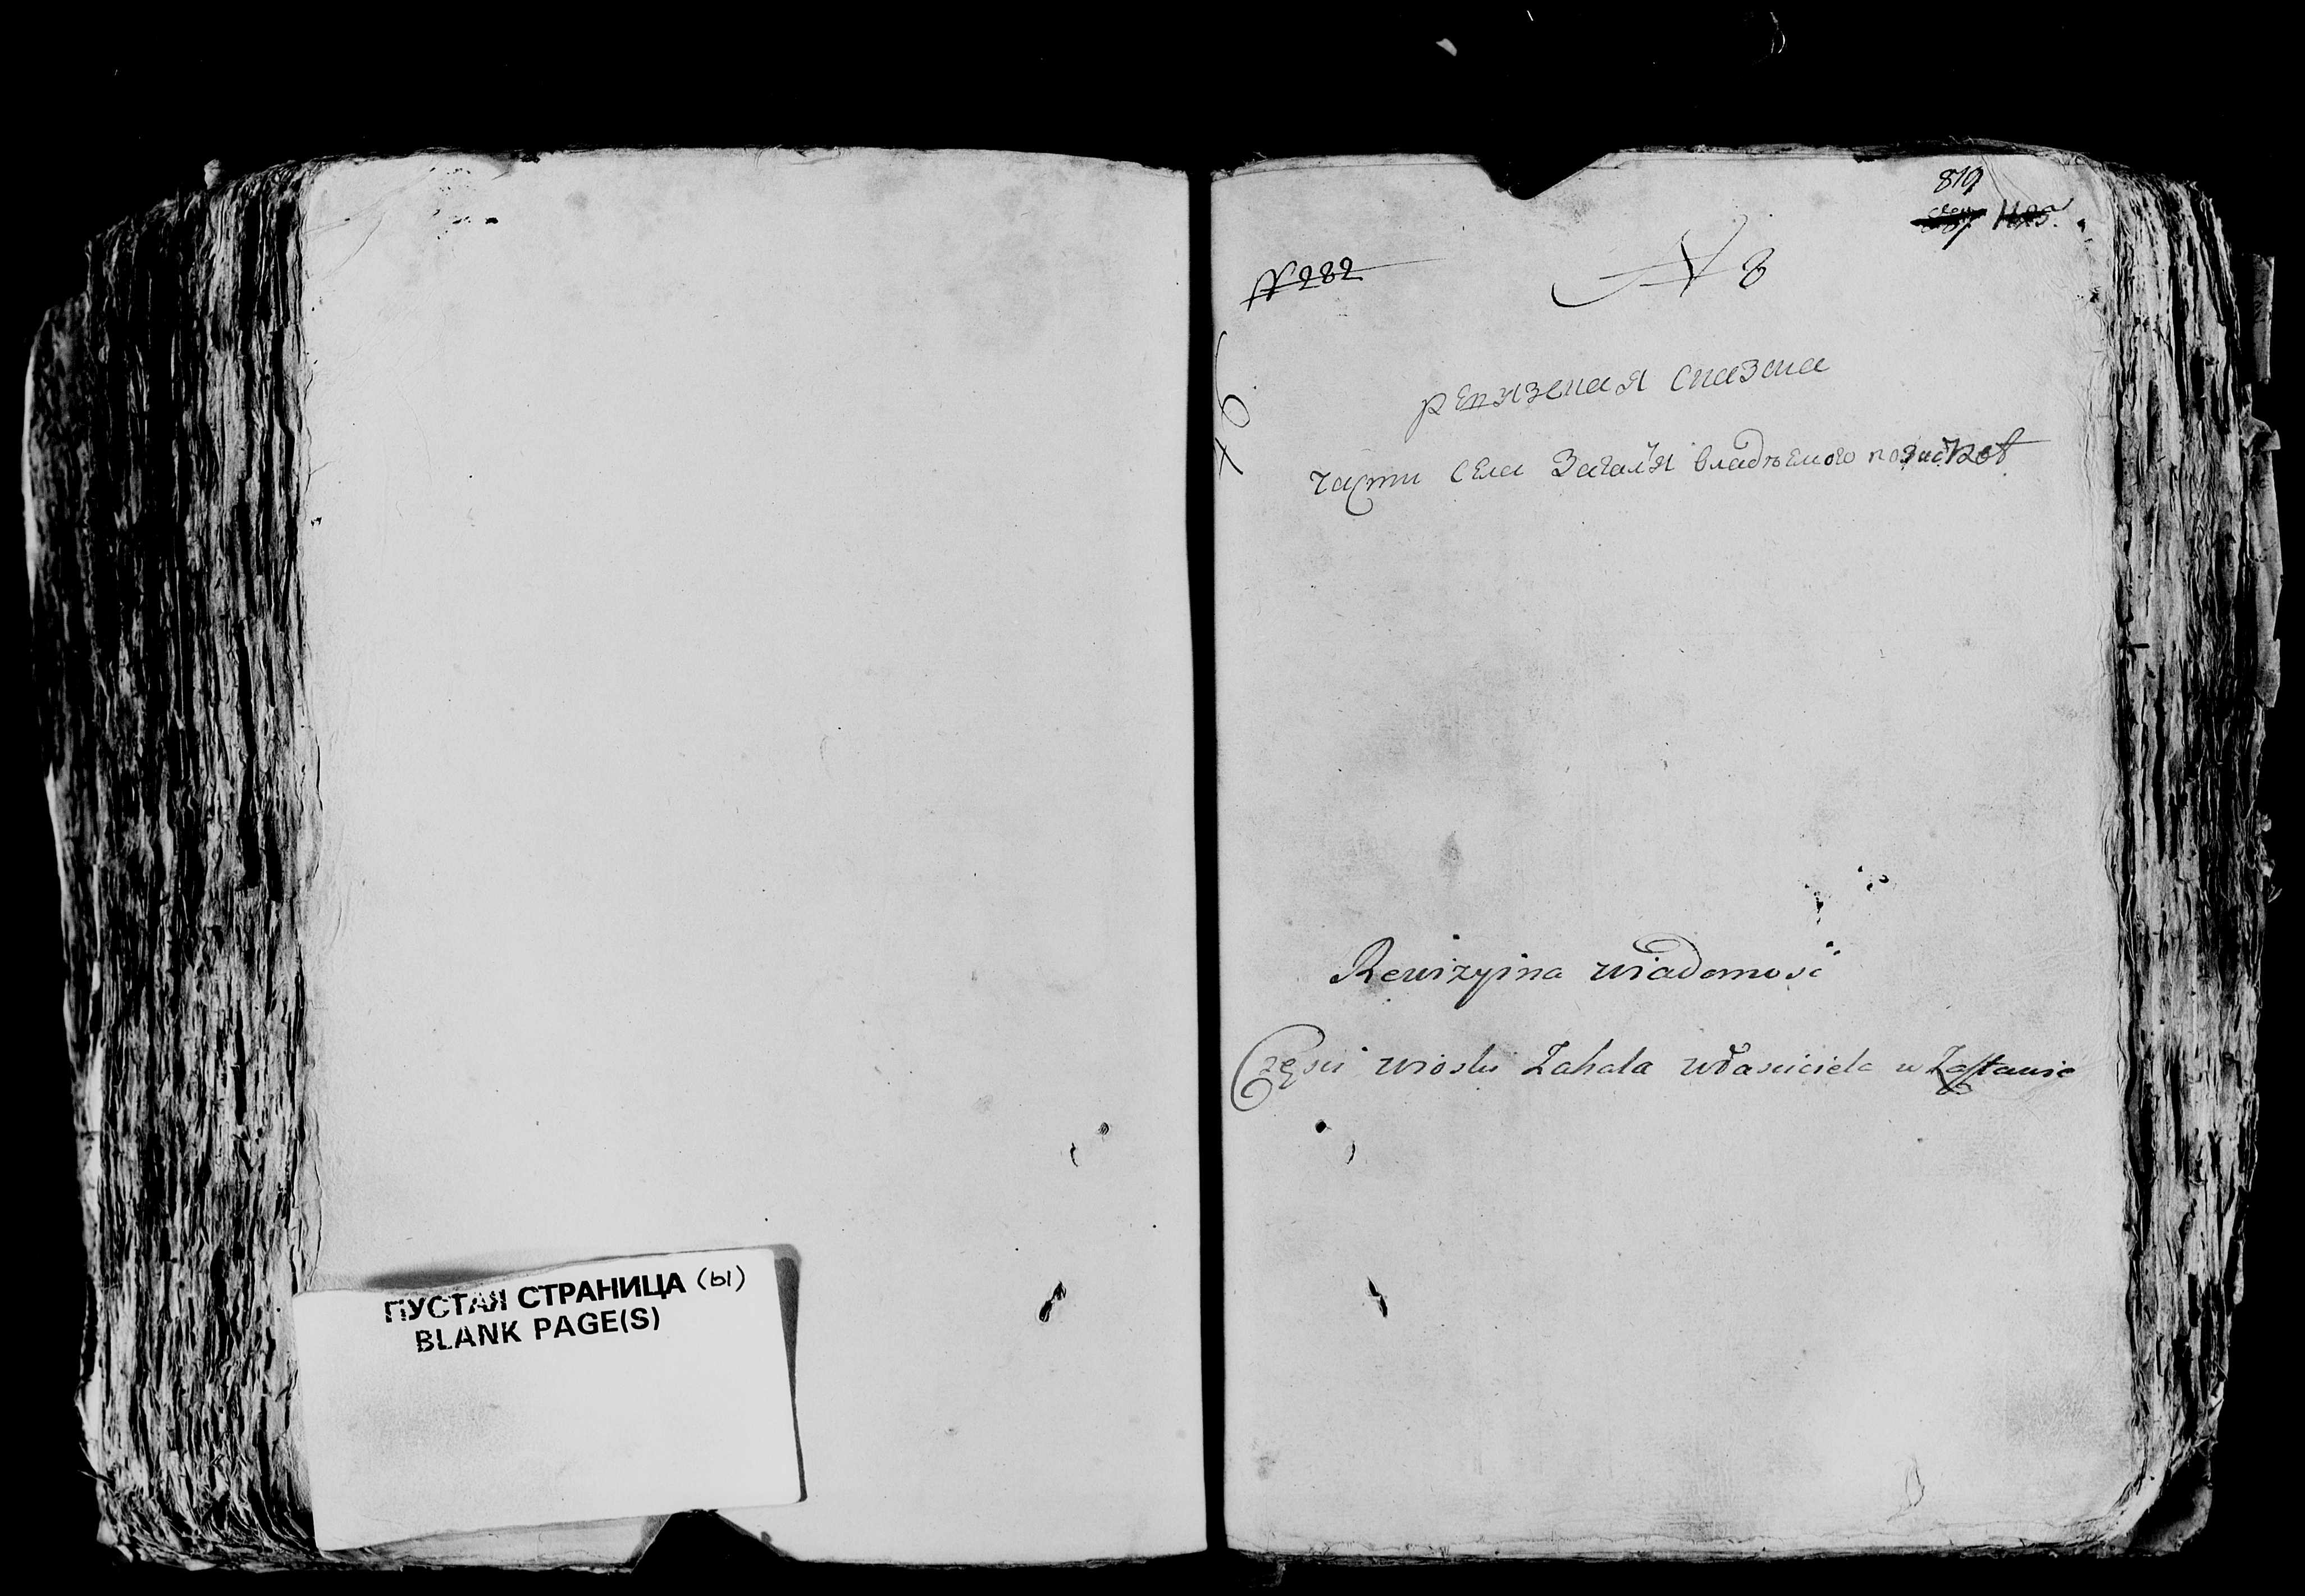 ПУСТАЯ СТРАНИЦА (ы)
BLANK PAGE(S)
819
№ 282
№ 8
76.
ревизская сказка
части села Загалья владѣемого
Rewizyina wiadomość
Części wioski Zahala właściciela w Zastawie